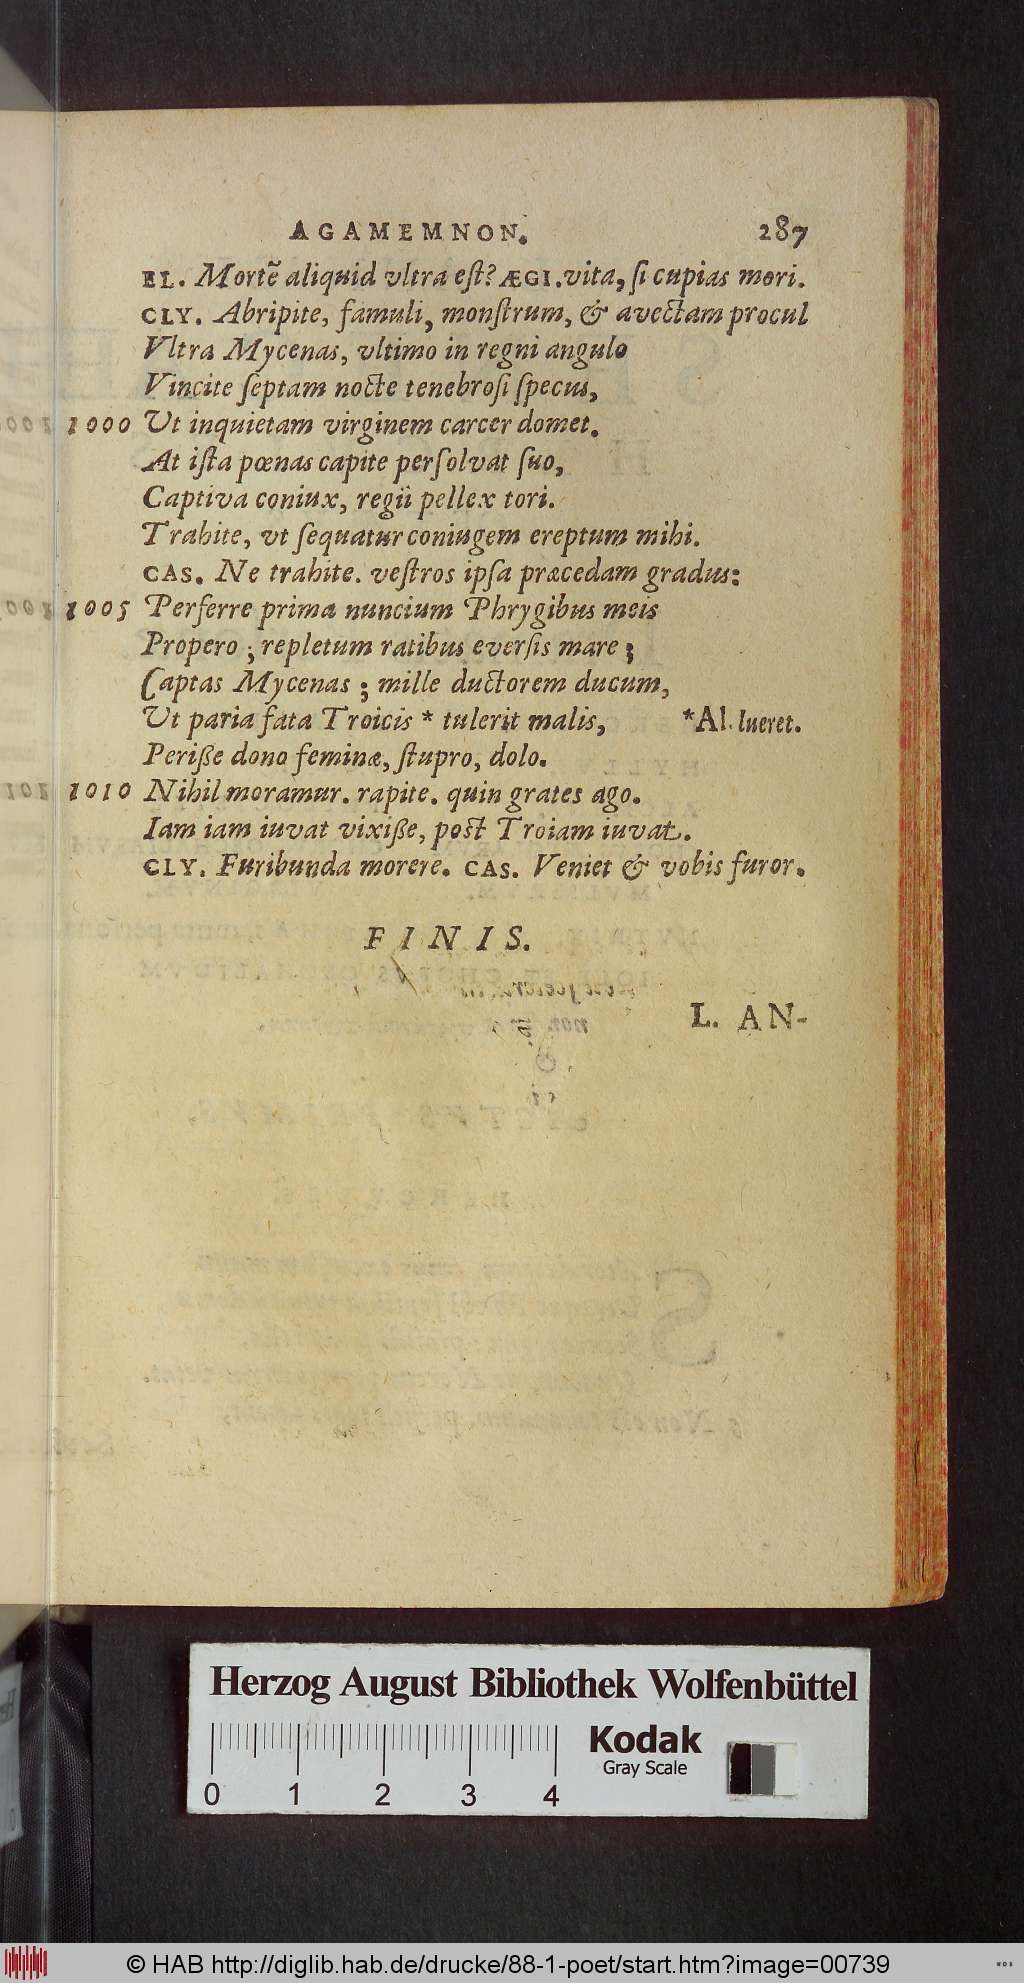 AGAMEMNON. 287
EL. Mortẽ aliquid vltra eſt? ÆGI. vita, ſi cupias mori.
CLY. Abripite, famuli, monſtrum, & avectam procul
Vltra Mycenas, vltimo in regni angulo
Vincite ſeptam nocte tenebroſi ſpecus,
1000 Ut inquietam virginem carcer domet.
At iſta pœnas capite perſolvat ſuo,
Captiva coniux, regii pellex tori.
Trahite, vt ſequatur coniugem ereptum mihi.
CAS. Ne trahite. veſtros ipſa præcedam gradus:
1005 Perferre prima nuncium Phrygibus meis
Propero ; repletum ratibus everſis mare ;
Captas Mycenas ; mille ductorem ducum,
Ut paria fata Troicis * tulerit malis, *Al. lueret.
Periße dono feminæ, ſtupro, dolo.
1010 Nihil moramur. rapite. quin grates ago.
Iam iam iuvat vixiße, poſt Troiam iuvat.
CLY. Furibunda morere. CAS. Veniet & vobis furor.
FINIS.
L. AN-
Herzog August Bibliothek Wolfenbüttel
Kodak
Gray Scale
0 1 2 3 4
© HAB http://diglib.hab.de/drucke/88-1-poet/start.htm?image=00739